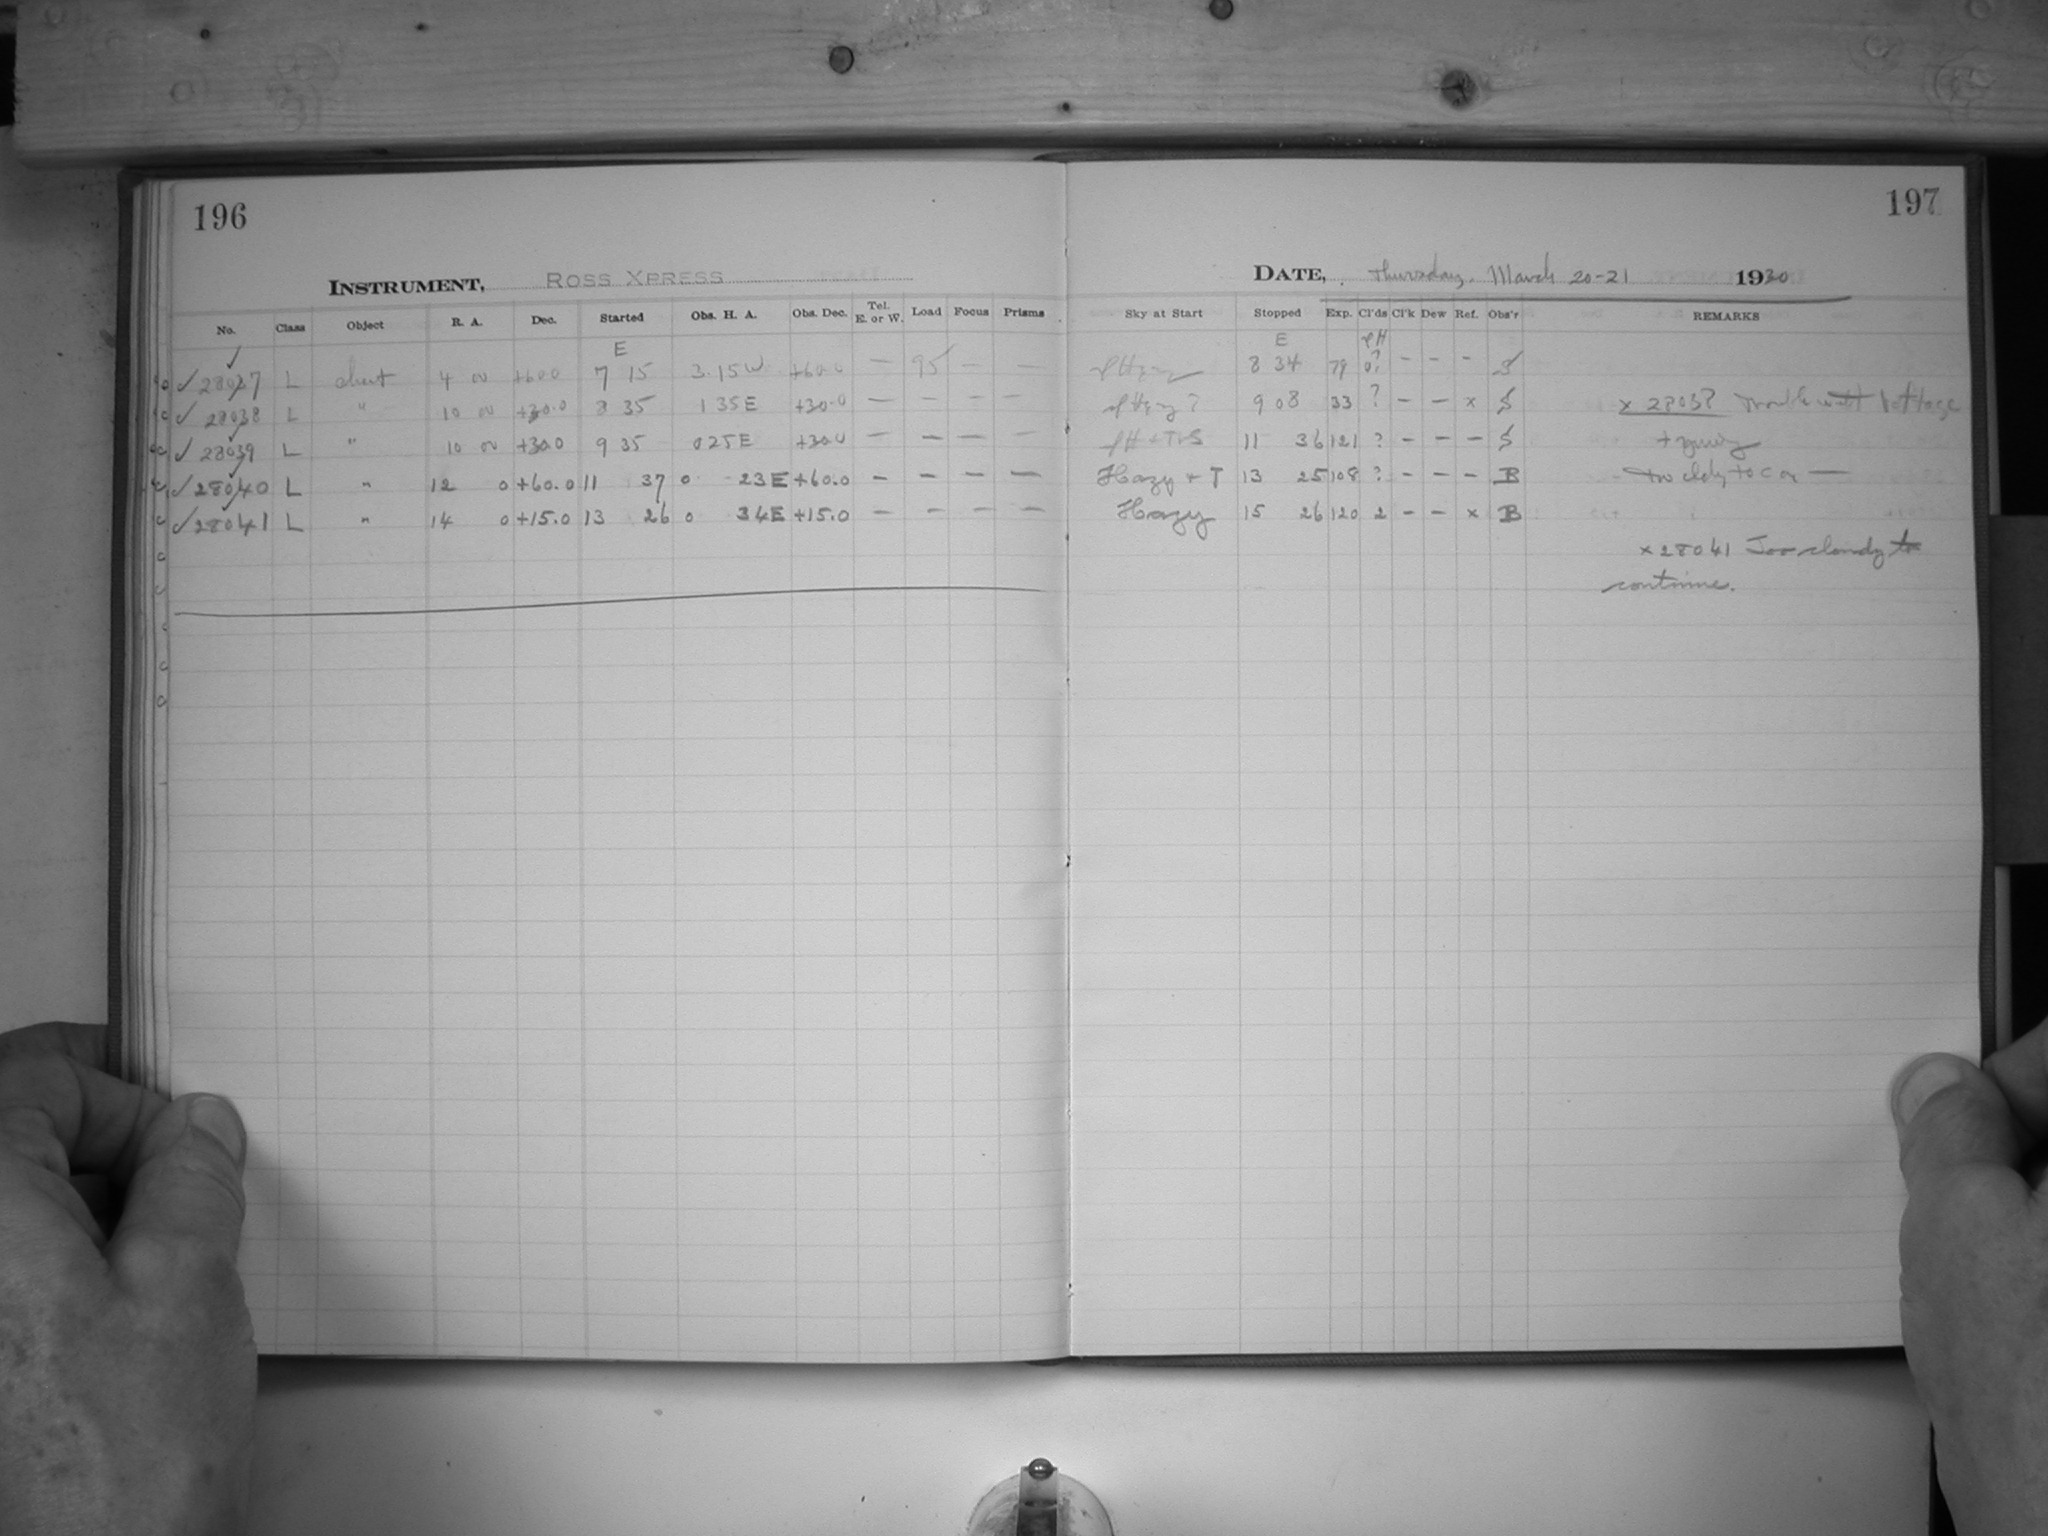 196
197
INSTRUMENT, ROSS XPRESS
DATE, Thursday, March 20-21 1930
No. Class Object R. A. Dec. Started Obs. H. A. Obs. Dec. Tel. E. or W. Load Focus Prisms Sky at Start Stopped Exp. Cl'ds Cl'k Dew Ref. Obs'r REMARKS
E E
✓ 28037 L chart 4 00 +60.0 7 15 3.15W +60.0 — 95 — — 8 34 79 0? – – – S
✓ 28038 L " 10 00 +30.0 8 35 1 35E +30.0 — – — — 9 08 33 ? – – x S x 28038 Trouble with
✓ 28039 L " 10 00 +30.0 9 35 0 25E +30.0 — – — — 11 36 121 ? – – – S
✓ 28040 L " 12 0 +60.0 11 37 0 23E +60.0 – – – — Hazy + T 13 25 108 ? – – – B
✓ 28041 L " 14 0 +15.0 13 26 0 34E +15.0 – – – – Hazy 15 26 120 2 – – x B
x 28041 Too cloudy to
continue.